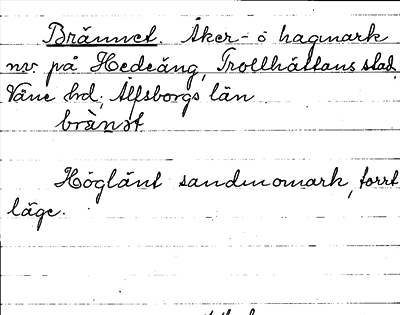 Brännet. Åker- o hagmark
nv. på Hedeäng, Trollhättans stad,
Väne hd, Älfsborgs län
brànət
Höglänt sandmomark, torrt
läge.